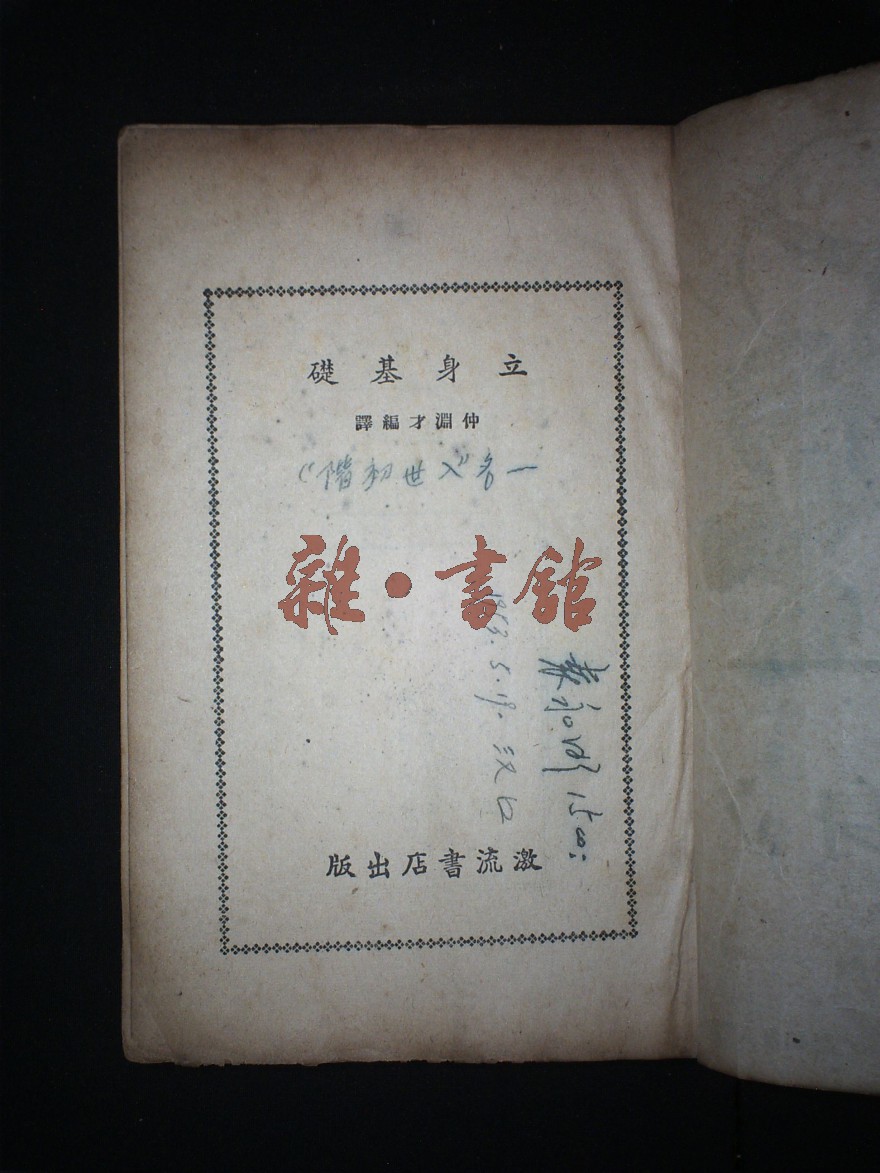 立身基礎
仲淵才編譯
一名“入世初階”
雜·書館
漢口
激流書店出版